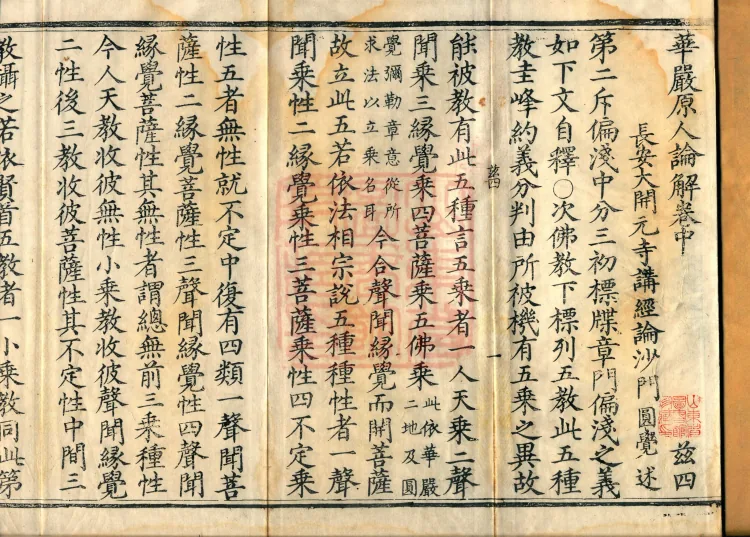 華嚴原人論解卷中 茲四
長安大開元寺講經論沙門圓覺述
第二斥偏淺中分三初標牒章門偏淺之義
如下文自釋○次佛教下標列五教此五種
教圭峰約義分判由所被機有五乘之異故
茲四 一
能被教有此五種言五乘者一人天乘二聲
聞乘三緣覺乘四菩薩乘五佛乘此依華嚴二地及圓
覺彌勒章意從所求法以立乘名耳今合聲聞緣覺而開菩薩
故立此五若依法相宗說五種種性者一聲
聞乘性二緣覺乘性三菩薩乘性四不定乘
性五者無性就不定中復有四類一聲聞菩
薩性二緣覺菩薩性三聲聞緣覺性四聲聞
緣覺菩薩性其無性者謂總無前三乘種性
今人天教收彼無性小乘教收彼聲聞緣覺
二性後三教收彼菩薩性其不定性中間三
教攝之若依賢首五教者一小乘教同此第